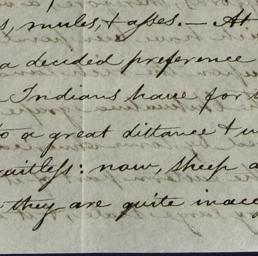 s, mules, & asses. — At
a decided preference
Indians have for t
to a great distance &
uitless: now, sheep a
they are quite inacc